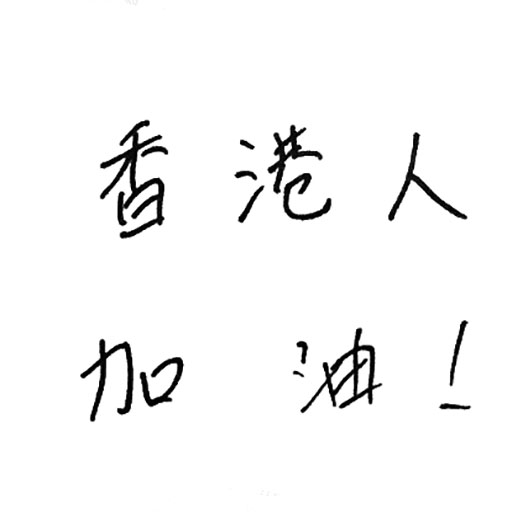 香港人
加油!